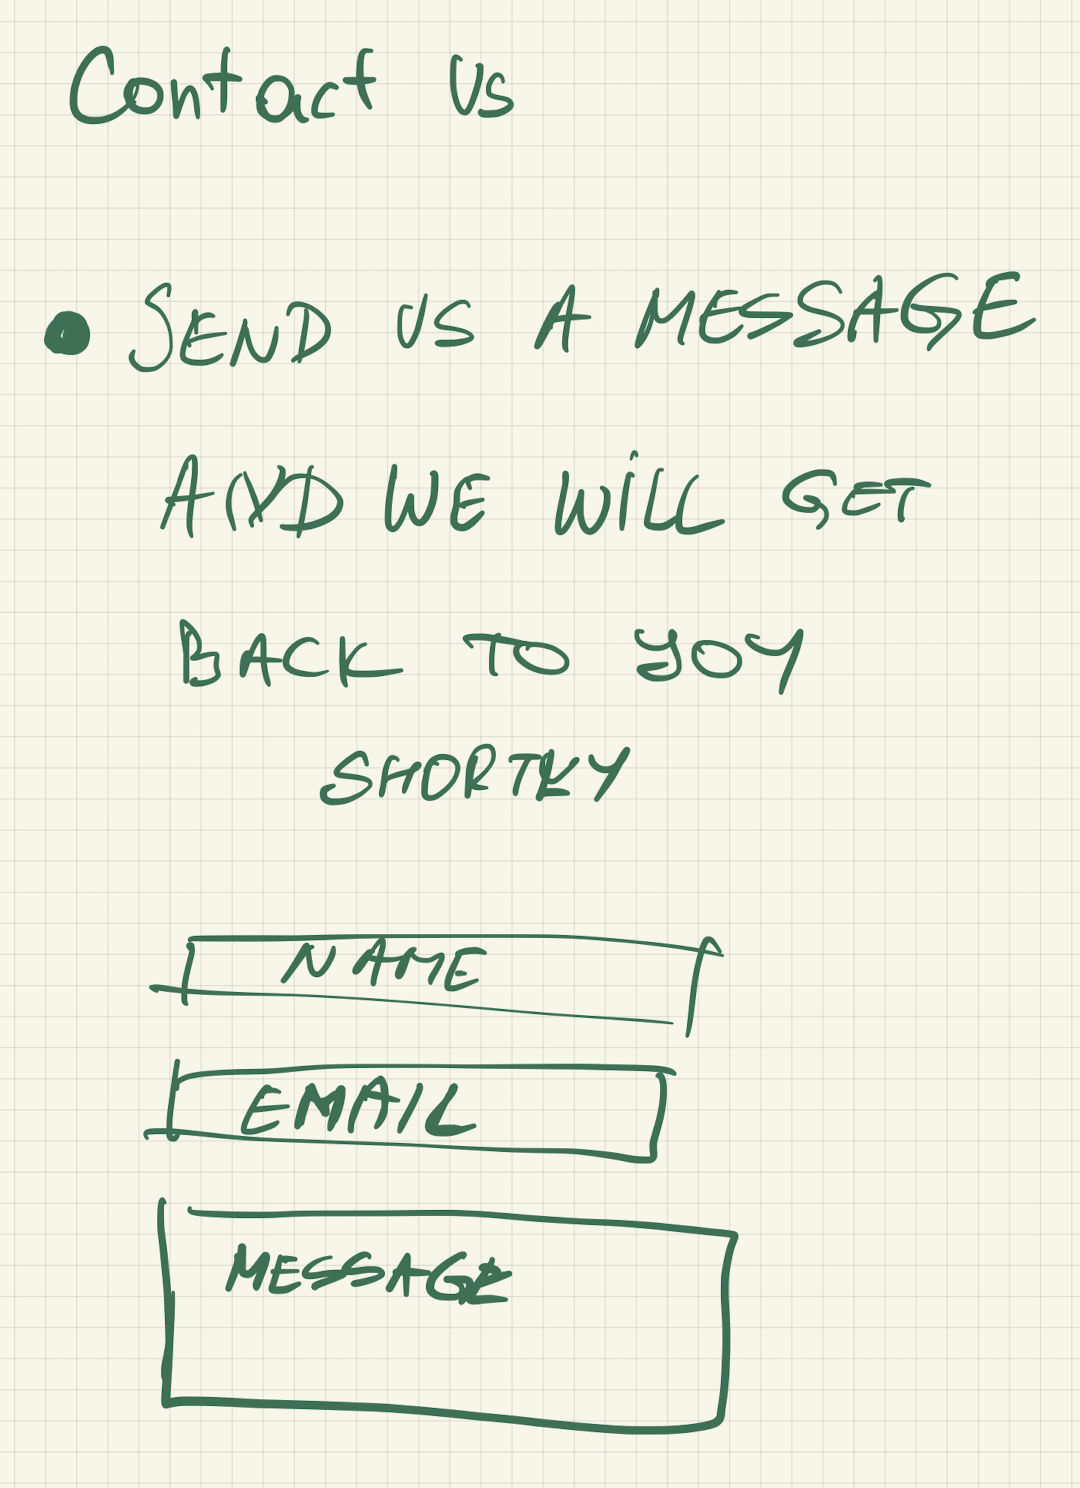 Contact Us
• SEND US A MESSAGE
AND WE WILL GET
BACK TO YOY
SHORTLY
NAME
EMAIL
MESSAGE